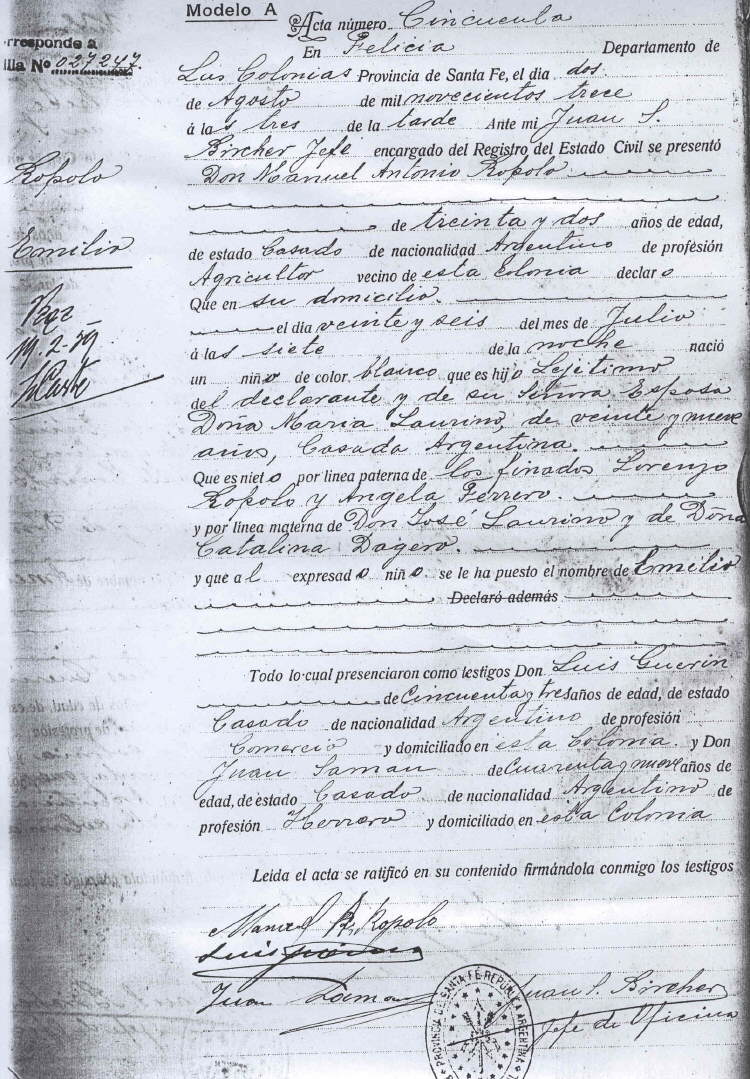 Modelo A
rresponde a
lla Nº 027247.
Acta número Cincuenta
En Felicia Departamento de
Las Colonias Provincia de Santa Fe, el dia dos
de Agosto de mil novecientos trece
á las tres de la tarde Ante mi Juan S.
Bircher Jefe encargado del Registro del Estado Civil se presentó
Ropolo
Don Manuel Antonio Ropolo
de treinta y dos años de edad,
Emilio
de estado Casado de nacionalidad Argentino de profesión
Agricultor vecino de esta Colonia declaro
Que en su domicilio.
el dia veinte y seis del mes de Julio
19-2-79
á las siete de la noche nació
un niño de color blanco que es hijo Lejitimo
del declarante y de su Señora Esposa
Doña Maria Laurino, de veinte y nueve
años, Casada Argentina.
Que es nieto por linea paterna de los finados Lorenzo
Ropolo y Angela Ferrero.
y por linea materna de Don José Laurino y de Doña
Catalina Dagero.
y que al expresado niño se le ha puesto el nombre de Emilio
Declaró además
Todo lo cual presenciaron como testigos Don Luis Guerin
de Cincuenta y tres años de edad, de estado
Casado de nacionalidad Argentino de profesión
Comercio y domiciliado en esta Colonia. y Don
Juan Saman de Cuarenta y nueve años de
edad, de estado Casado de nacionalidad Argentino de
profesión Herrero y domiciliado en esta Colonia
Leida el acta se ratificó en su contenido firmándola conmigo los testigos
Manuel A. Ropolo
Luis Guerin
Juan Saman Juan S. Bircher
Jefe de Oficina
PROVINCIA DE SANTA FE REPUBLICA ARGENTINA